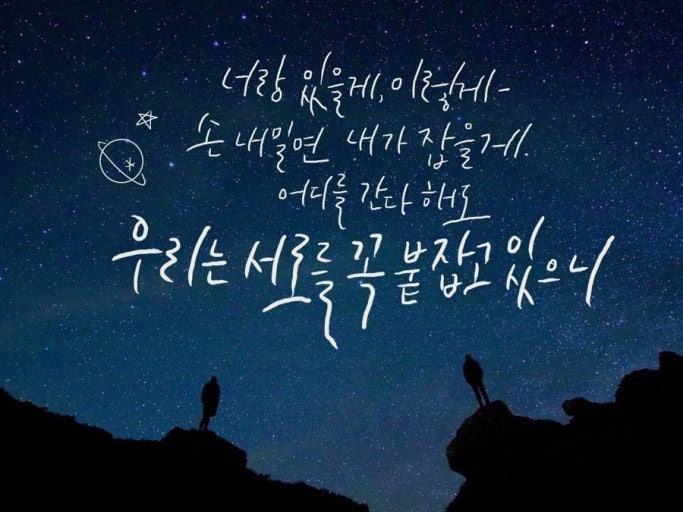 너랑 있을게, 이렇게-
손 내밀면 내가 잡을게
어디를 간다 해도
우리는 서로를 꼭 붙잡고 있으니